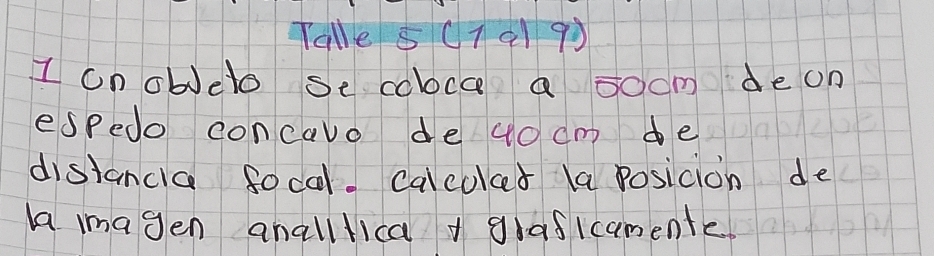 Talle 5 (1 al 9)
1 un objeto se coloca a 50cm de un
espejo concavo de 40 cm de
distancia focal. calcular la posición de
la imagen analitica y graficamente.